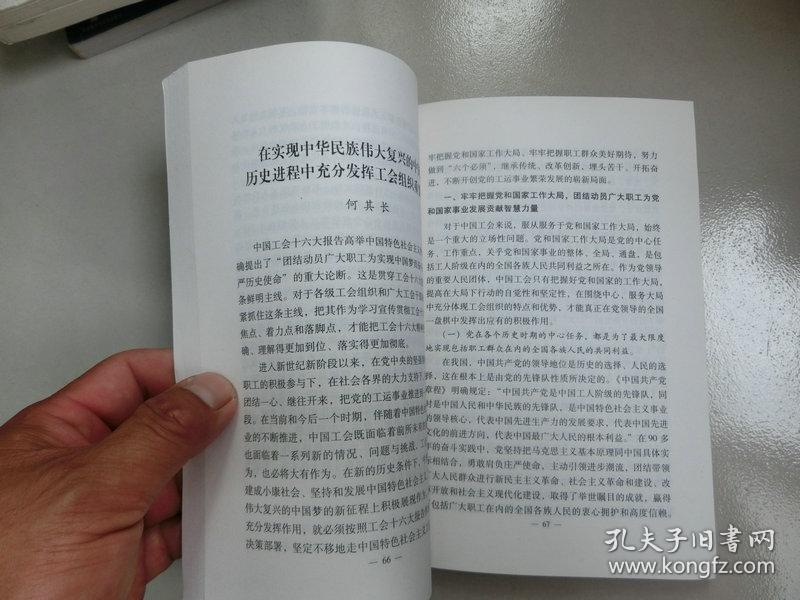 在实现中华民族伟大复兴的中
历史进程中充分发挥工会组织
何其长
中国工会十六大报告高举中国特色社会主义
确提出了“团结动员广大职工为实现中国梦
严历史使命”的重大论断。这是贯穿工会十六
条鲜明主线。对于各级工会组织和广大工会干部
紧抓住这条主线，把其作为学习宣传贯彻工会十
焦点、着力点和落脚点，才能把工会十六大精神
确、理解得更加到位、落实得更加彻底。
进入新世纪新阶段以来，在党中央的坚强
职工的积极参与下，在社会各界的大力支持下
团结一心、继往开来，把党的工运事业推进到
段。在当前和今后一个时期，伴随着中国特色
业的不断推进，中国工会既面临着前所未有
也面临着一系列新的情况、问题与挑战，工
为，也必将大有作为。在新的历史条件下，中
建成小康社会、坚持和发展中国特色社会主
伟大复兴的中国梦的新征程上积极展现作为
充分发挥作用，就必须按照工会十六大报告
决策部署，坚定不移地走中国特色社会主义
— 66 —
牢把握党和国家工作大局、牢牢把握职工群众美好期待，努力
做到“六个必须”，继承传统、改革创新，埋头苦干、开拓奋
进，不断开创党的工运事业繁荣发展的崭新局面。
一、牢牢把握党和国家工作大局，团结动员广大职工为党
和国家事业发展贡献智慧力量
对于中国工会来说，服从服务于党和国家工作大局，始终
是一个重大的立场性问题。党和国家工作大局是党的中心任
务、工作重点，关乎党和国家事业的整体、全局、通盘，是包
括工人阶级在内的全国各族人民共同利益之所在。作为党领导
的重要人民团体，中国工会只有把握好党和国家的工作大局，
提高在大局下行动的自觉性和坚定性，在围绕中心、服务大局
中充分体现工会组织的特点和优势，才能真正在党领导的全国
一盘棋中发挥出应有的积极作用。
（一）党在各个历史时期的中心任务，都是为了最大限度
地实现包括职工群众在内的全国各族人民的共同利益。
在我国，中国共产党的领导地位是历史的选择、人民的选
择，这在根本上是由党的先锋队性质所决定的。《中国共产党
章程》明确规定：“中国共产党是中国工人阶级的先锋队，同
时是中国人民和中华民族的先锋队，是中国特色社会主义事业
的领导核心，代表中国先进生产力的发展要求，代表中国先进
文化的前进方向，代表中国最广大人民的根本利益。”在 90 多
年的奋斗实践中，党坚持把马克思主义基本原理同中国具体实
际相结合，勇敢肩负庄严使命，主动引领进步潮流，团结带领
大人民群众进行新民主主义革命、社会主义革命和建设、改
开放和社会主义现代化建设，取得了举世瞩目的成就，赢得
包括广大职工在内的全国各族人民的衷心拥护和高度信赖。
— 67 —
孔夫子旧书网
www.kongfz.com